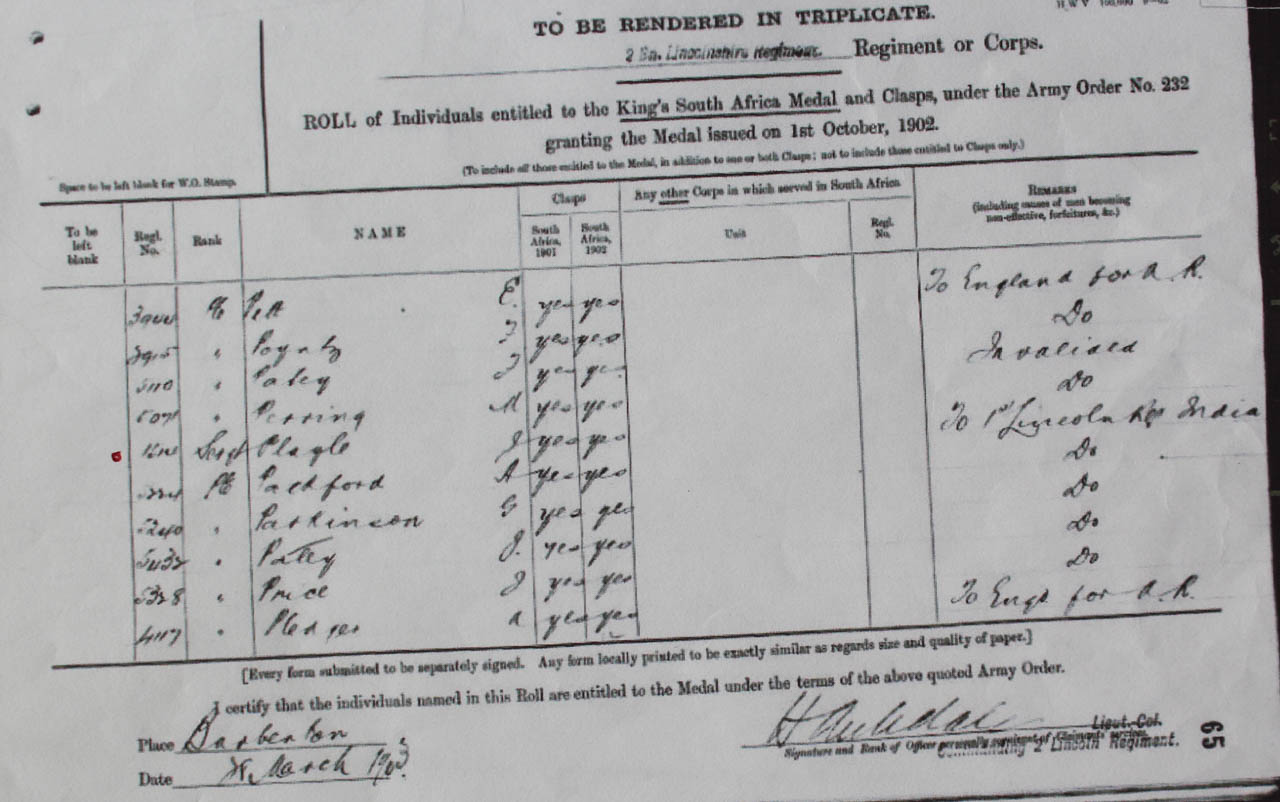 TO BE RENDERED IN TRIPLICATE.
2 Bn. Lincolnshire Regiment. Regiment or Corps.
ROLL of Individuals entitled to the King's South Africa Medal and Clasps, under the Army Order No. 232
granting the Medal issued on 1st October, 1902.
(To include all those entitled to the Medal, in addition to one or both Clasps; not to include those entitled to Clasps only.)
Space to be left blank for W.O. Stamp.
To be left blank
Regl. No.
Rank
NAME
Clasps
South Africa, 1901
South Africa, 1902
Any other Corps in which served in South Africa
Unit
Regl. No.
REMARKS
(including causes of men becoming non-effective, forfeitures, &c.)
Pte E. yes yes To England for A. R.
" yes yes Do
" yes Invalided
" Perring M yes yes Do
Sergt Plagle J yes yes To 1st Lincoln Regt India
Pte Packford A yes yes Do
5240 " Parkinson G yes yes Do
5432 " Patey J. yes yes Do
5328 " Price J yes yes Do
4117 " Pledger A yes yes To Engd for A. R.
[Every form submitted to be separately signed. Any form locally printed to be exactly similar as regards size and quality of paper.]
I certify that the individuals named in this Roll are entitled to the Medal under the terms of the above quoted Army Order.
Place Barberton
Lieut.-Col.
Signature and Rank of Officer
Commanding 2 Lincoln Regiment.
Date March 1903
65